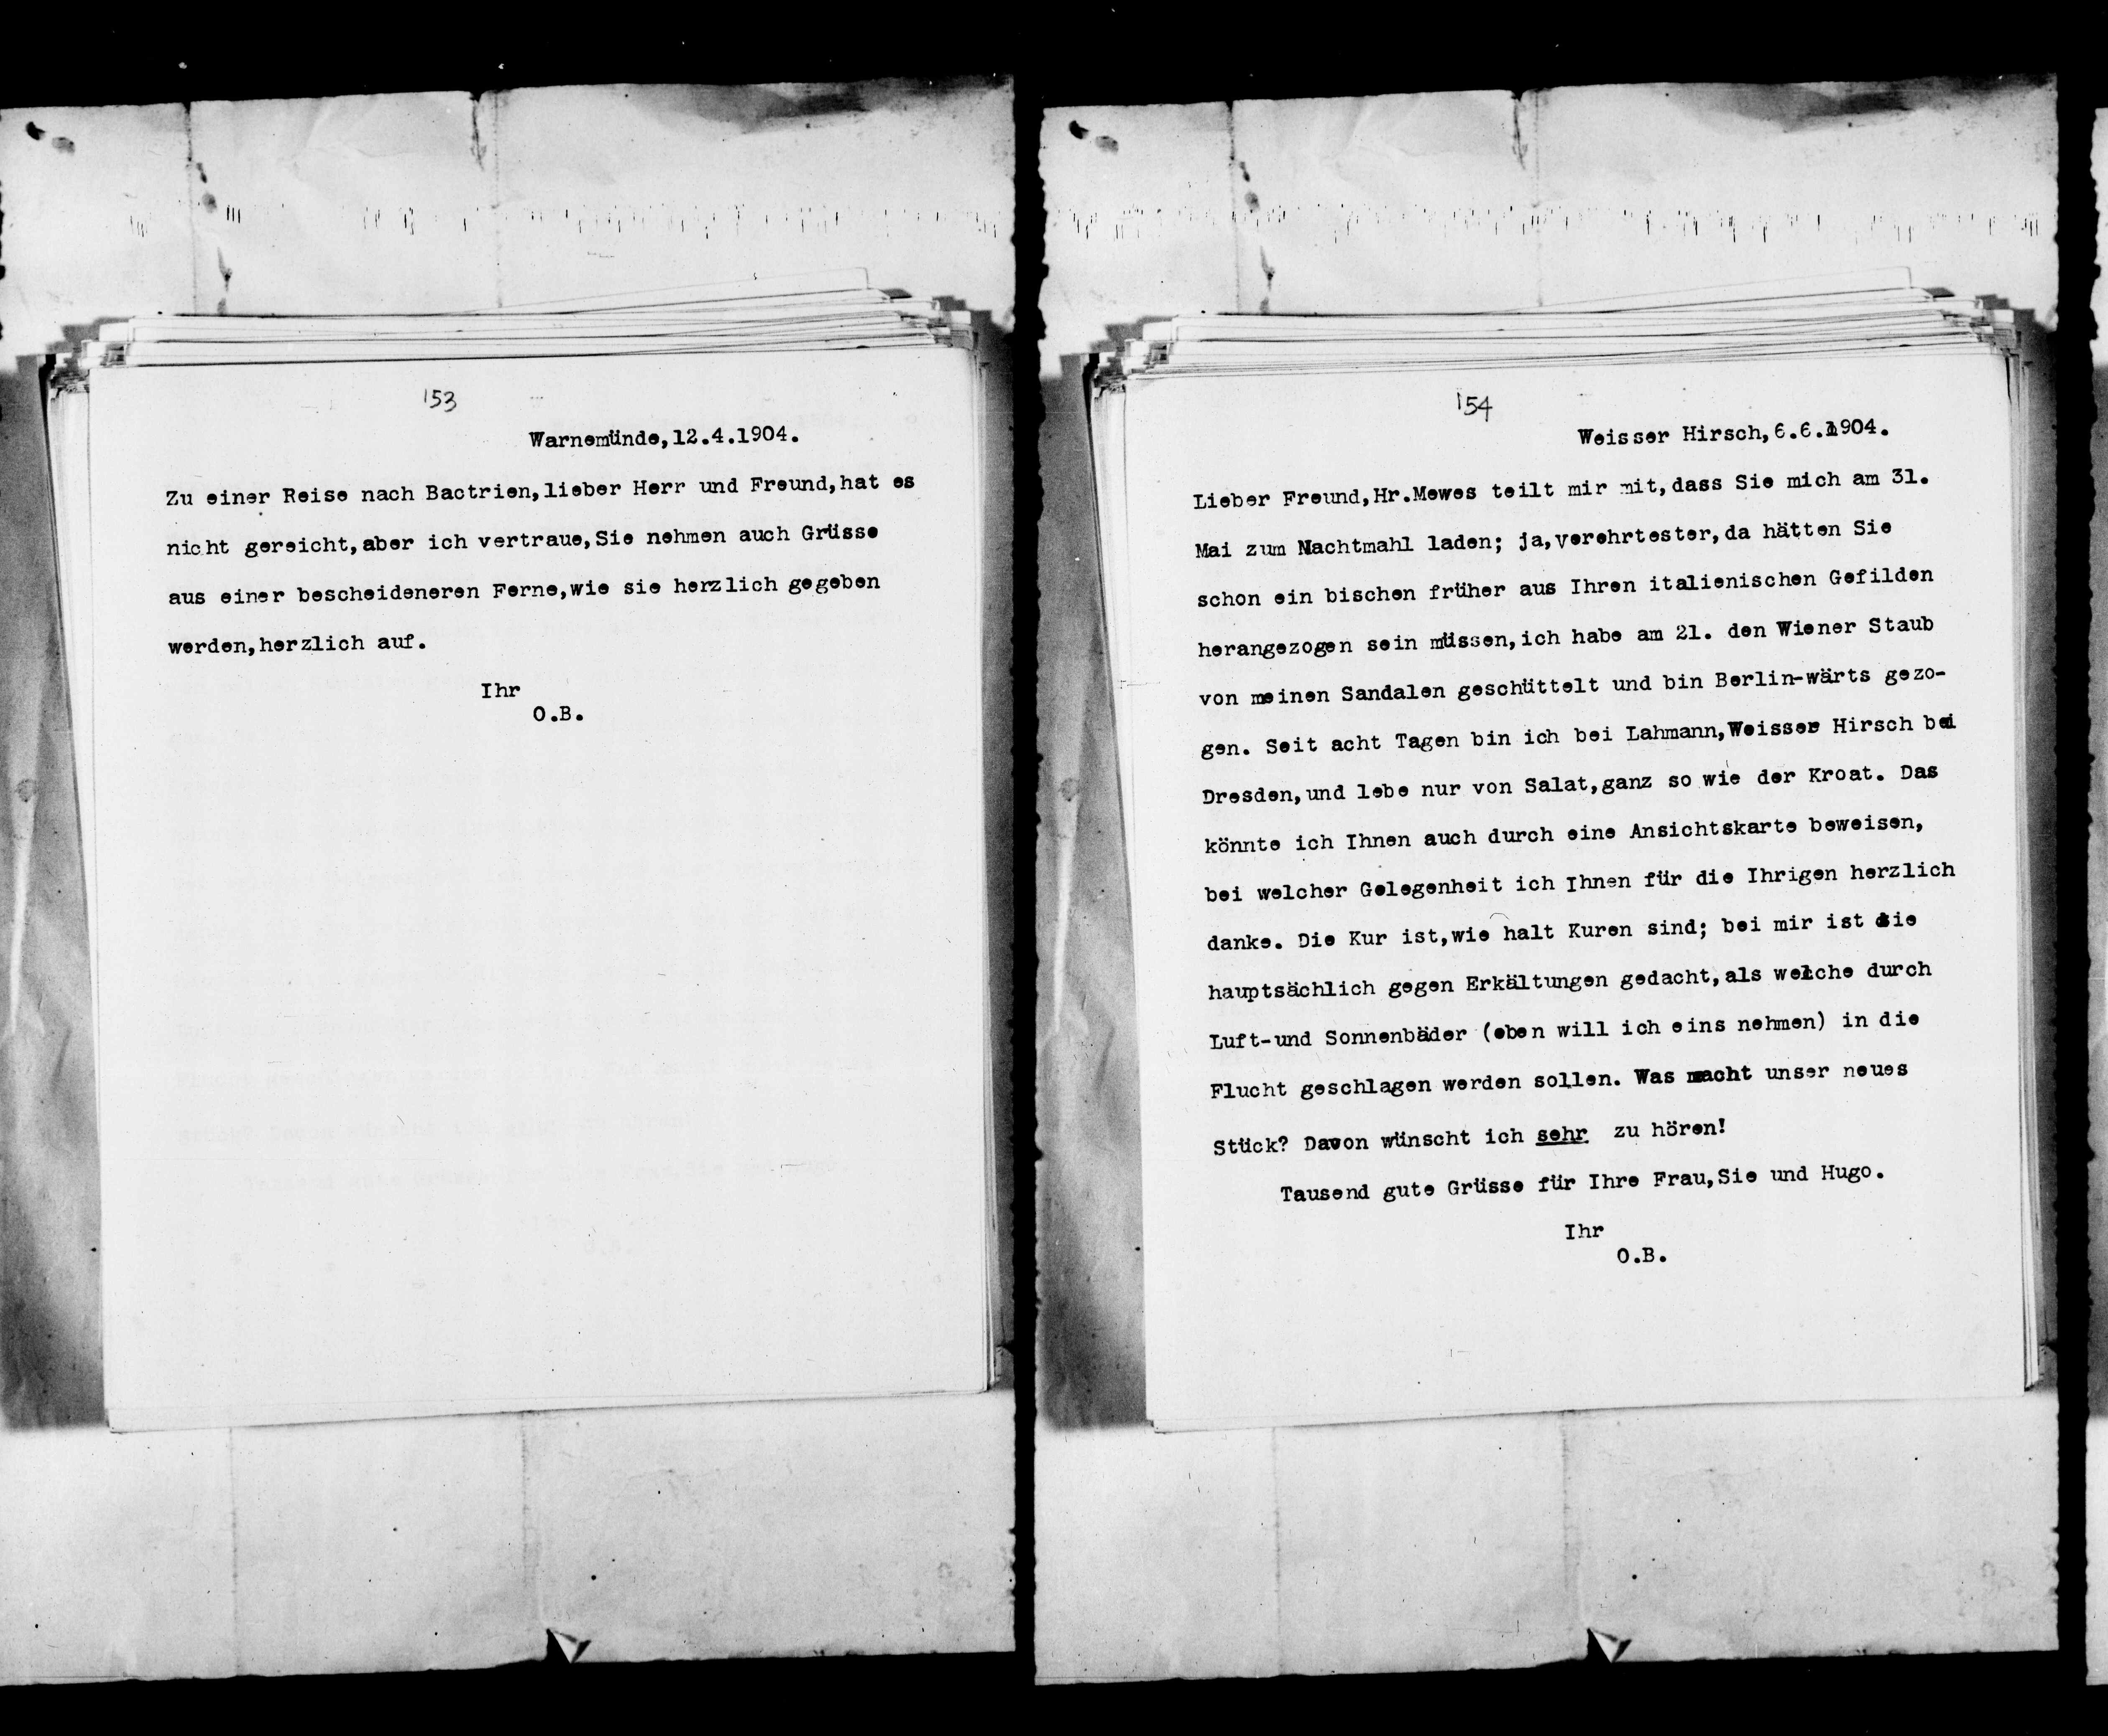 153
Warnemünde,12.4.1904.
Zu einer Reise nach Bactrien,lieber Herr und Freund,hat es
nicht gereicht,aber ich vertraue,Sie nehmen auch Grüsse
aus einer bescheideneren Ferne,wie sie herzlich gegeben
werden,herzlich auf.
Ihr
O.B.
154
Weisser Hirsch,6.6.1904.
Lieber Freund,Hr.Mewes teilt mir mit,dass Sie mich am 31.
Mai zum Nachtmahl laden; ja,verehrtester,da hätten Sie
schon ein bischen früher aus Ihren italienischen Gefilden
herangezogen sein müssen,ich habe am 21. den Wiener Staub
von meinen Sandalen geschüttelt und bin Berlin-wärts gezo-
gen. Seit acht Tagen bin ich bei Lahmann,Weisser Hirsch bei
Dresden,und lebe nur von Salat,ganz so wie der Kroat. Das
könnte ich Ihnen auch durch eine Ansichtskarte beweisen,
bei welcher Gelegenheit ich Ihnen für die Ihrigen herzlich
danke. Die Kur ist,wie halt Kuren sind; bei mir ist die
hauptsächlich gegen Erkältungen gedacht,als welche durch
Luft-und Sonnenbäder (eben will ich eins nehmen) in die
Flucht geschlagen werden sollen. Was macht unser neues
Stück? Davon wünscht ich sehr zu hören!
Tausend gute Grüsse für Ihre Frau,Sie und Hugo.
Ihr
O.B.